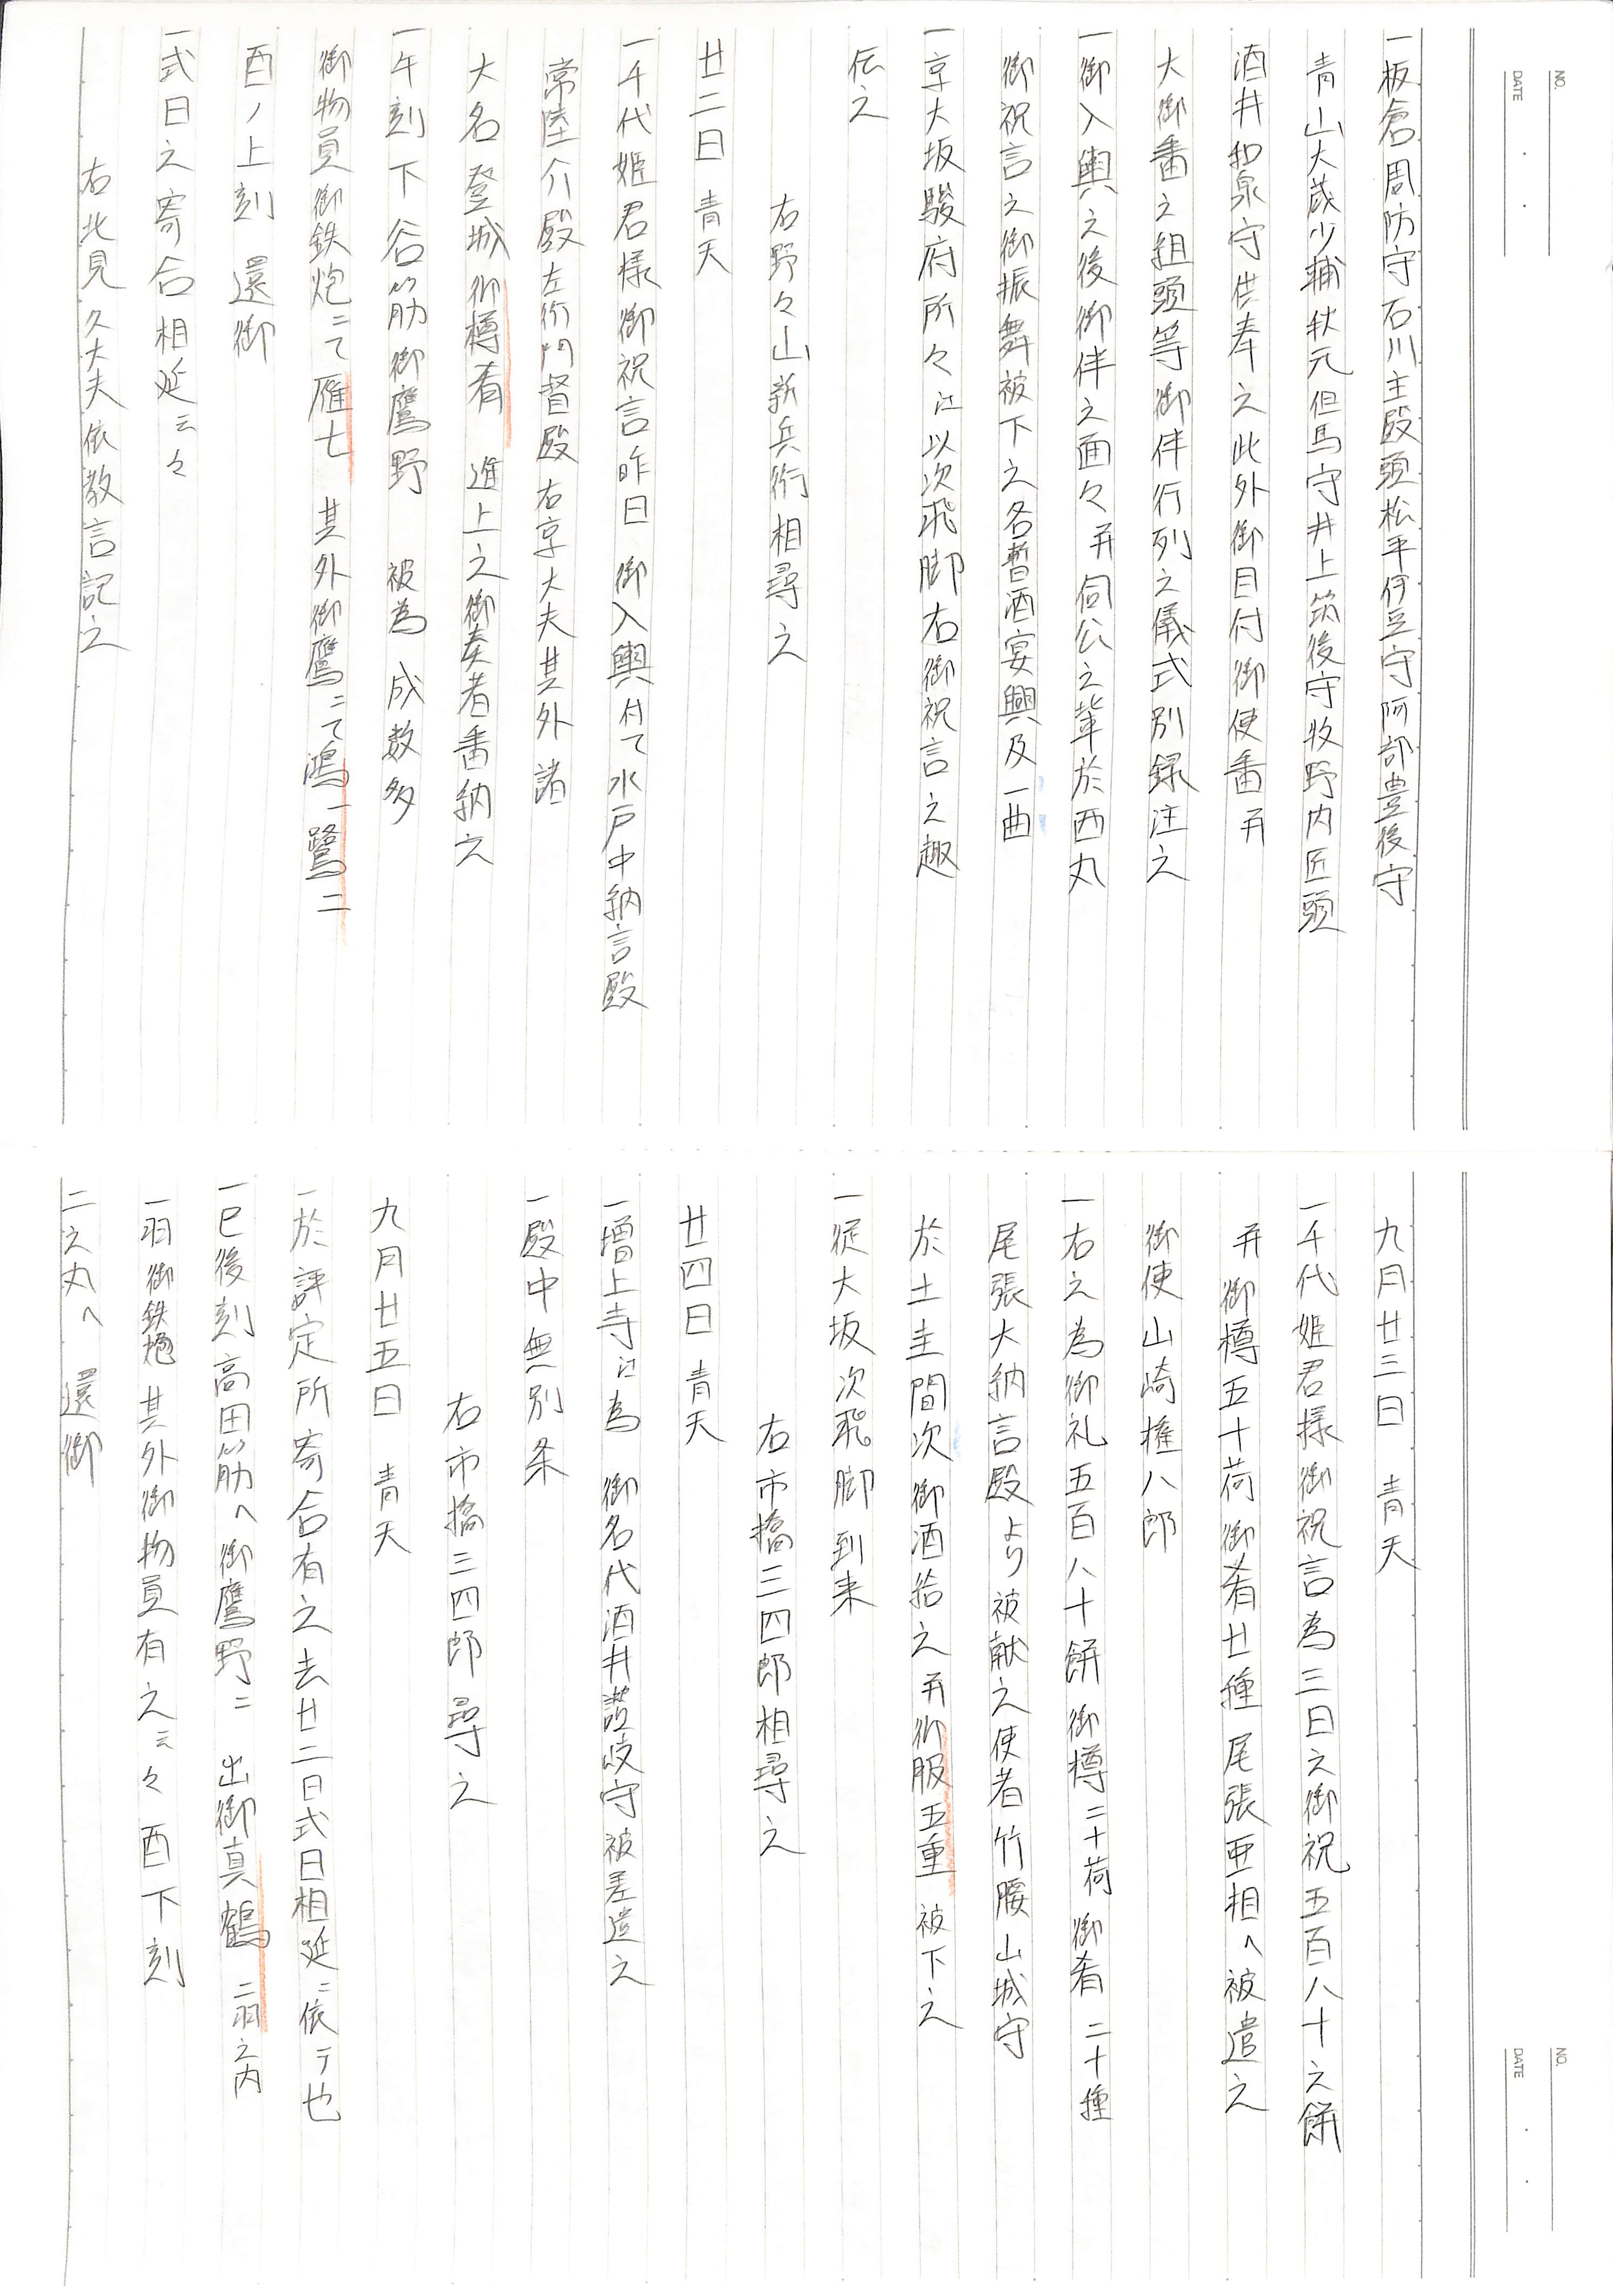 NO.
DATE
一板倉周防守石川主殿頭松平伊豆守阿部豊後守
青山大蔵少輔秋元但馬守井上筑後守牧野内匠頭
酒井和泉守供奉之此外御目付御使番并
大御番之組頭等御伴行列之儀式別録注之
一御入輿之後御伴之面々并伺公之輩於西丸
御祝言之御振舞被下之各暫酒宴興及一曲
一京大坂駿府所々江以次飛脚右御祝言之趣
伝之
右野々山新兵衛相尋之
廿二日 青天
一千代姫君様御祝言昨日 御入輿付て水戸中納言殿
常陸介殿左衛門督殿右京大夫其外 諸
大名登城御樽肴 進上之御奏者番納之
一午刻下谷筋御鷹野 被為 成数多
御物員御鉄炮ニて雁七 其外御鷹ニて鴻一鷺二
酉ノ上刻 還御
一式日之寄合相延云々
右北見久大夫依教言記之
NO.
DATE
九月廿三日 青天
一千代姫君様御祝言為三日之御祝五百八十之餅
并御樽五十荷御肴廿種尾張亜相へ被遣之
御使山崎権八郎
一右之為御礼五百八十餅御樽二十荷御肴二十種
尾張大納言殿より被献之使者竹腰山城守
於土圭間次御酒給之并御服五重 被下之
一従大坂次飛脚到来
右市橋三四郎相尋之
廿四日 青天
一増上寺江為 御名代酒井讃岐守被差遣之
一殿中無別条
右市橋三四郎尋之
九月廿五日 青天
一於評定所寄合有之去廿二日式日相延ニ依テ也
一巳後刻高田筋へ御鷹野ニ 出御真鶴二羽之内
一羽御鉄炮其外御物員有之云々酉下刻
二之丸へ 還御